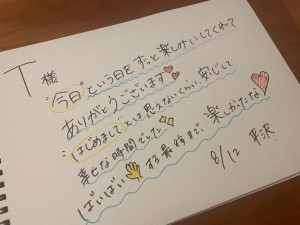 T 様
"今日"という日をずっと楽しみにしてくれて
ありがとうございます
"はじめまして"とは思えないくらい、安心して
幸せな時間でした
する最後まで、楽しかったな
ばいばい
8/12 平沢